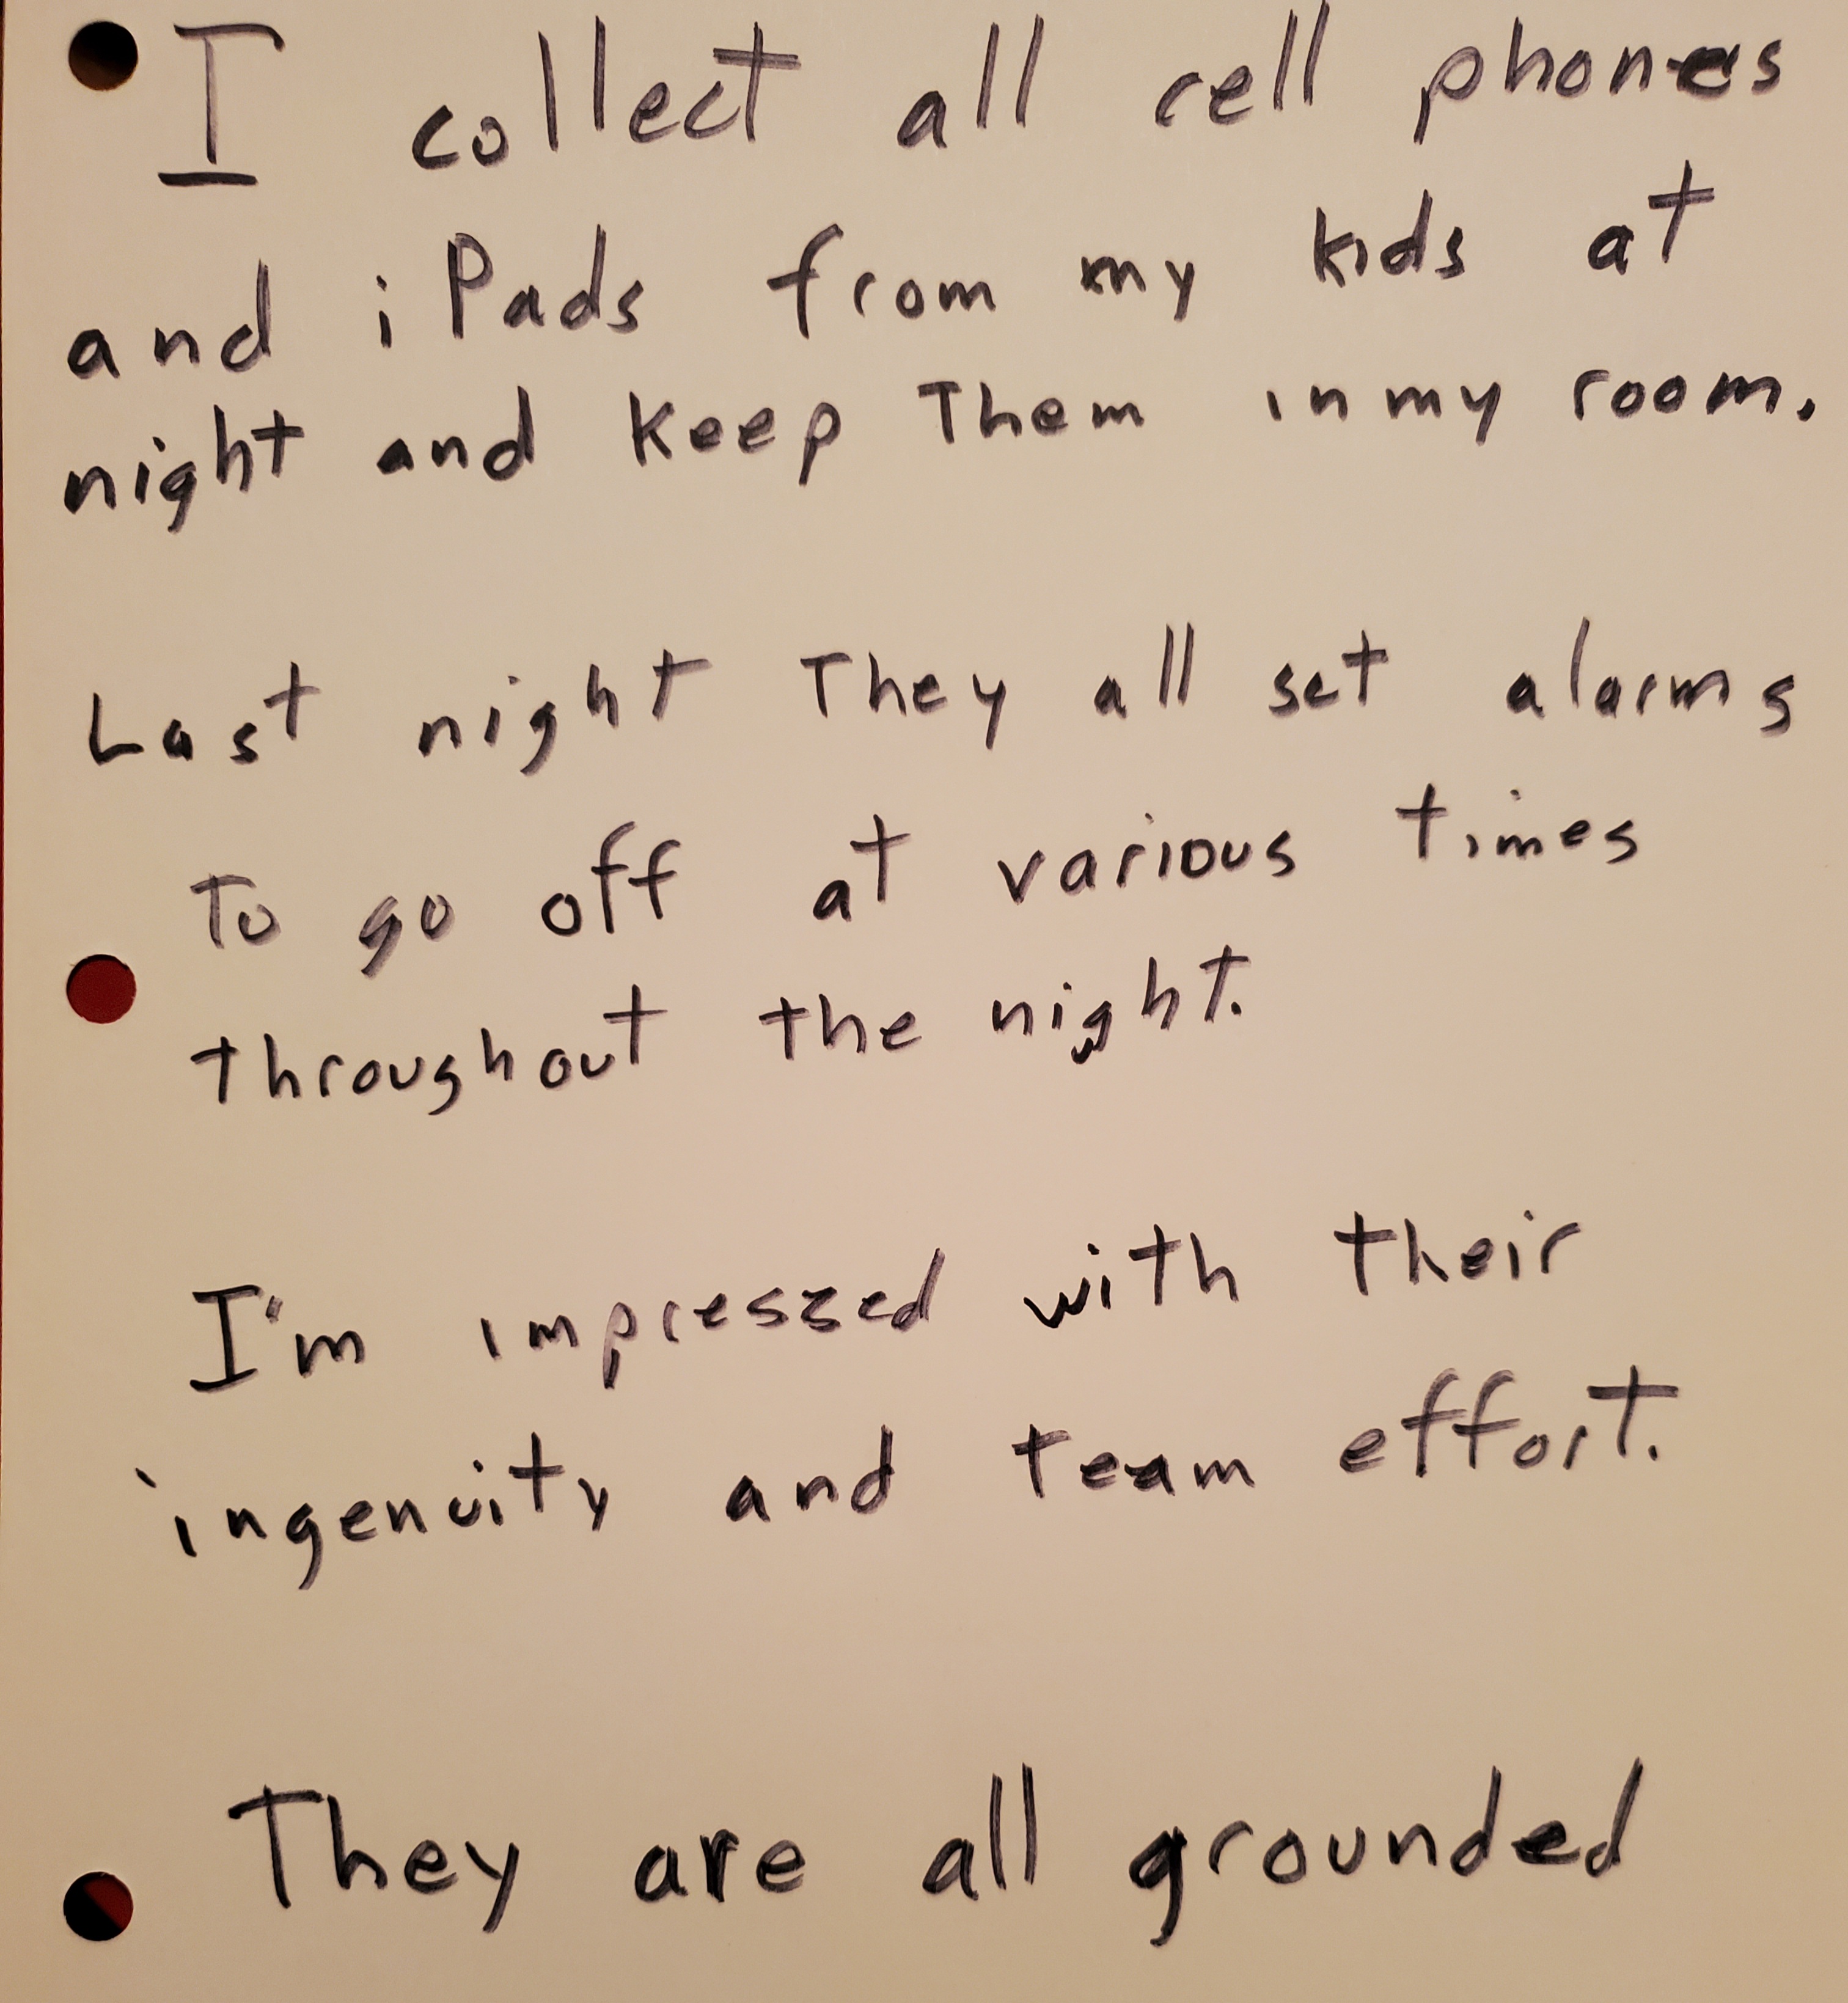 I collect all cell phones
and iPads from my kids at
night and keep Them in my room.
Last night They all set alarms
To go off at various times
throughout the night.
I'm impressed with their
ingenuity and team effort.
They are all grounded